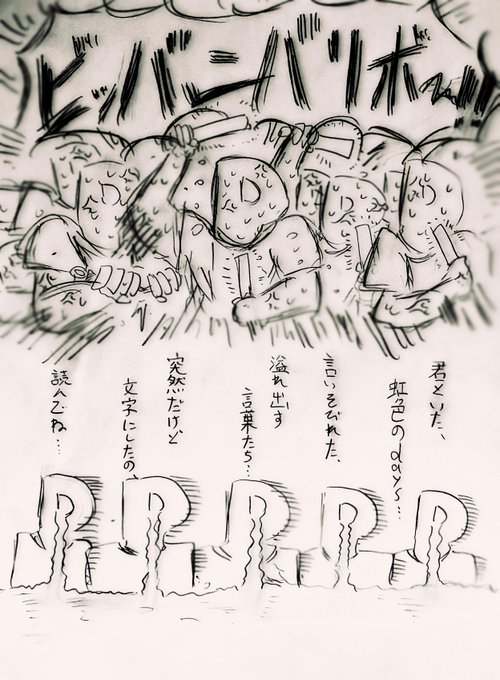 ビバニバリホ〜
君といた、
虹色のdays…
言いそびれた、
溢れ出す
言葉たち…
突然だけど
文字にしたの、
読んでね…